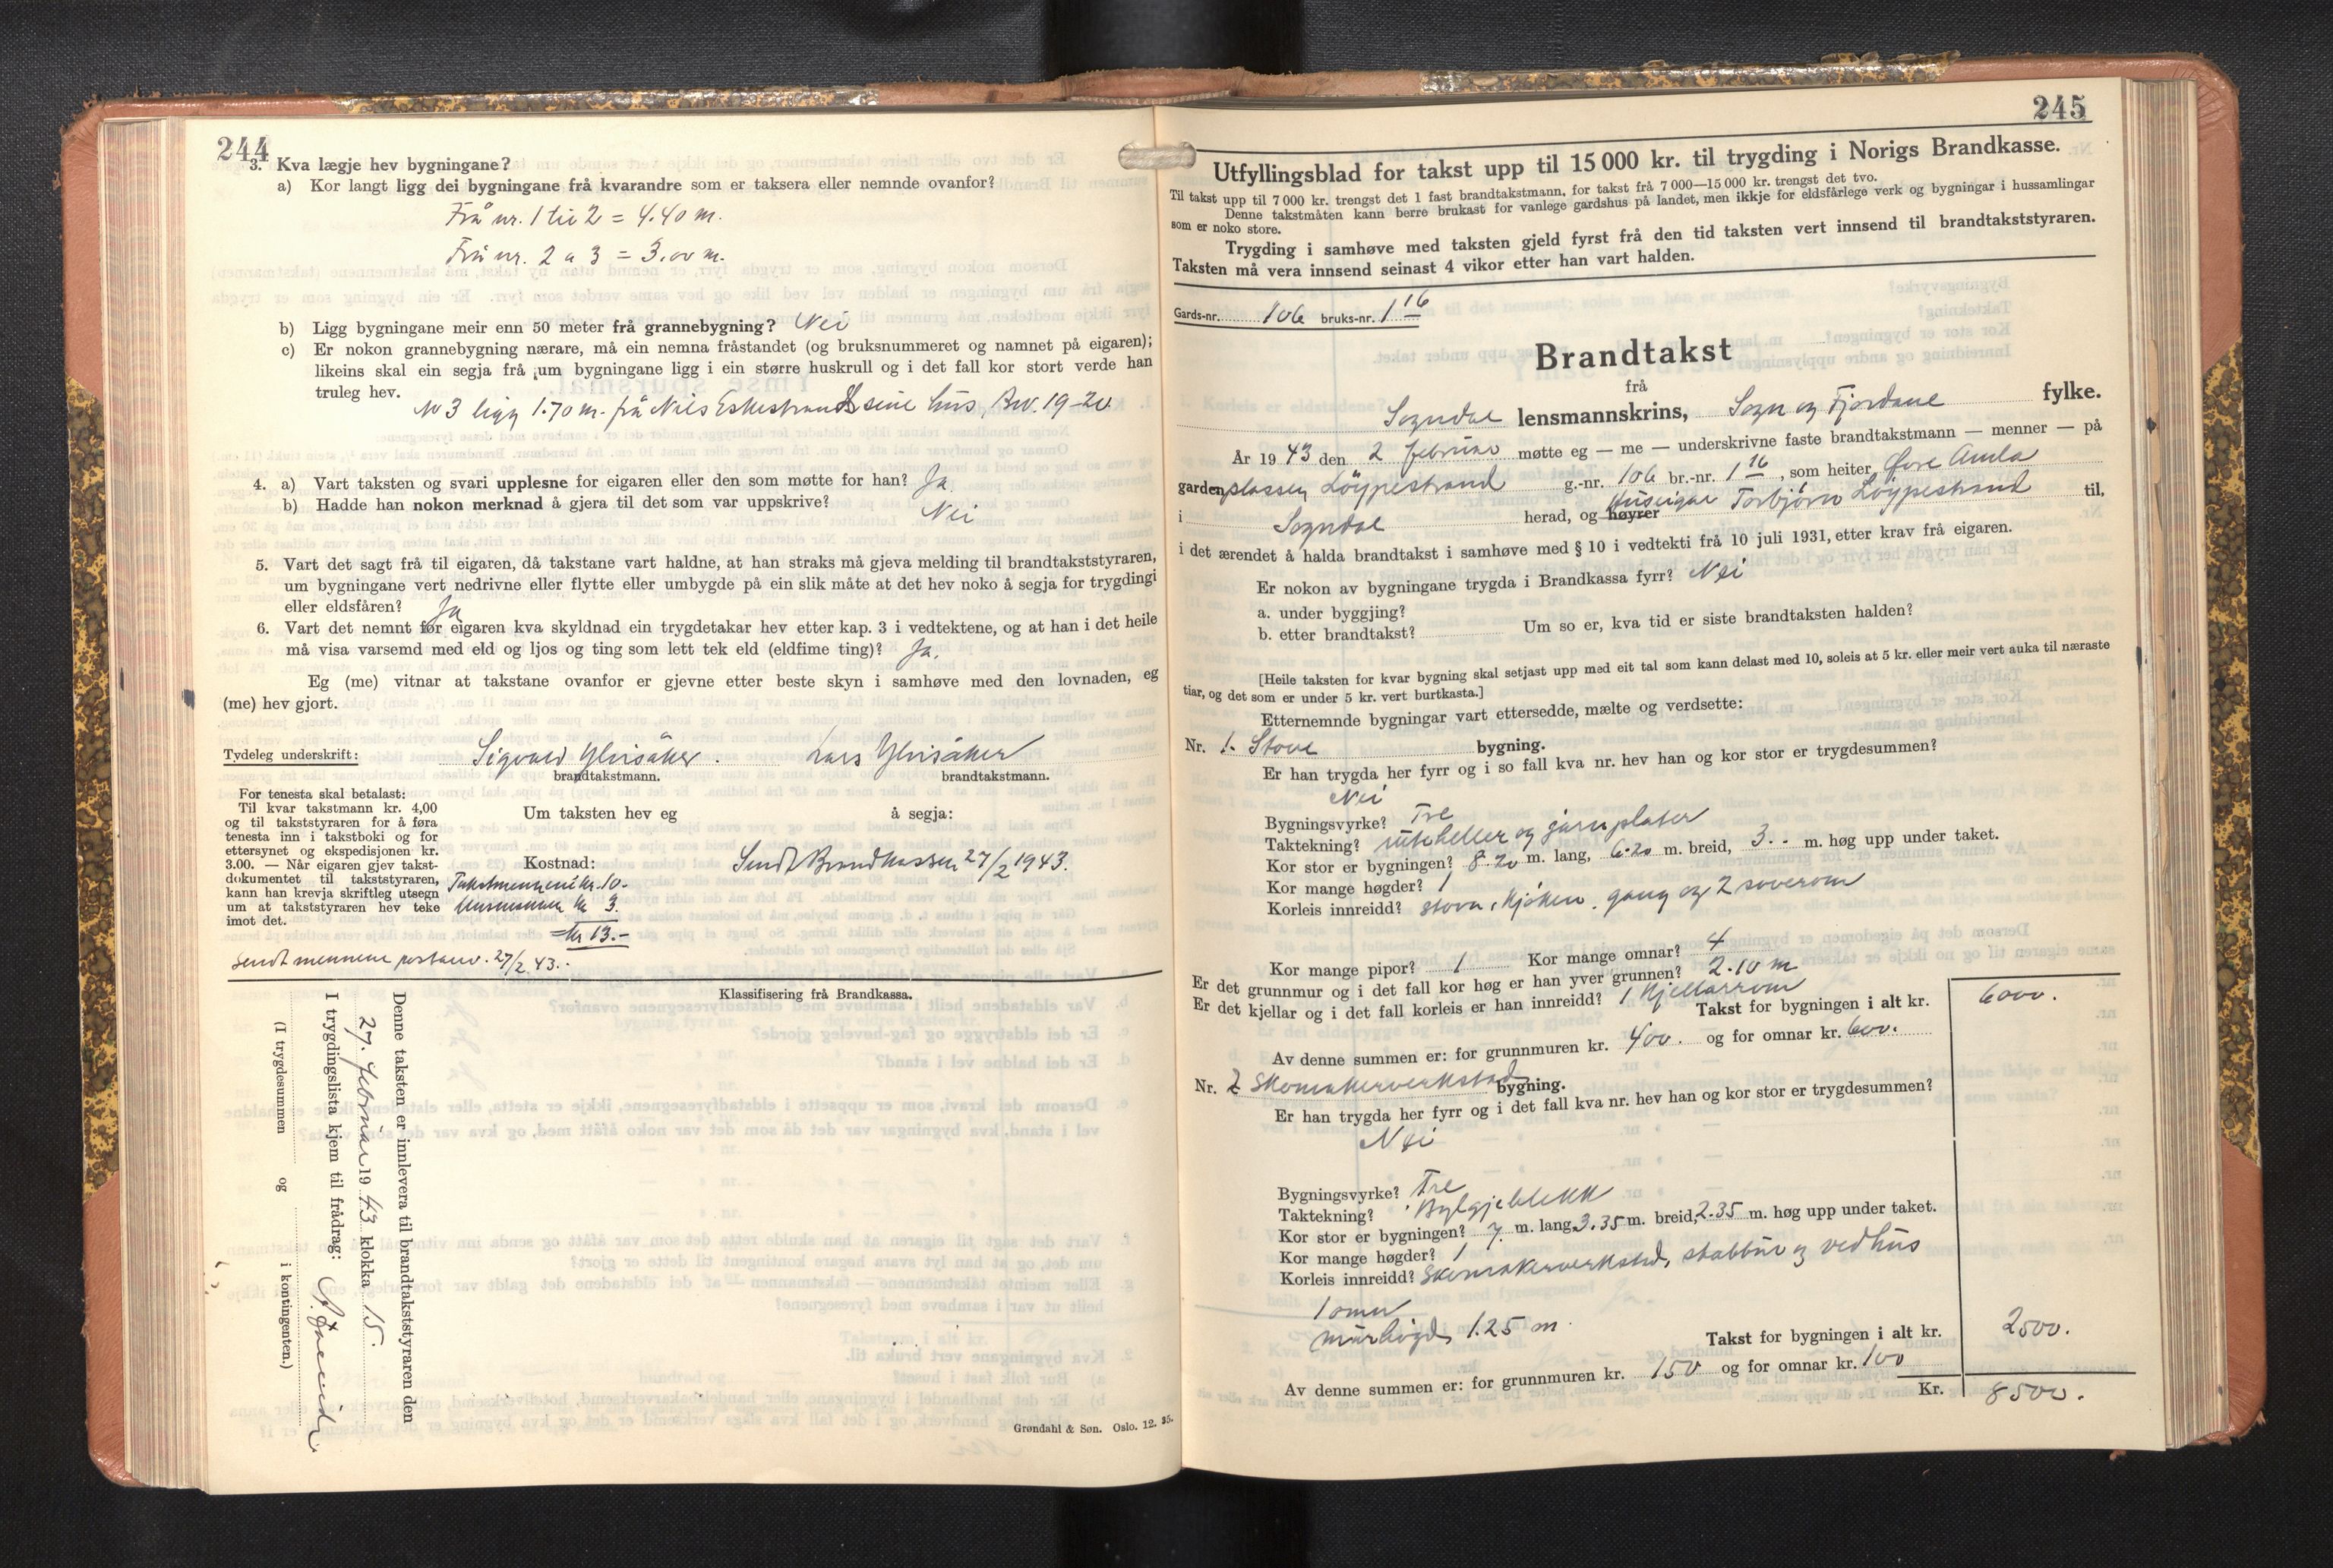 244
3. Kva lægje hev bygningane?
a) Kor langt ligg dei bygningane frå kvarandre som er taksera eller nemnde ovanfor?
Frå nr. 1 til 2 = 4.40 m.
Frå nr. 2 a 3 = 3.00 m.
b) Ligg bygningane meir enn 50 meter frå grannebygning? Nei
c) Er nokon grannebygning nærare, må ein nemna fråstandet (og bruksnummeret og namnet på eigaren);
likeins skal ein segja frå um bygningane ligg i ein større huskrull og i det fall kor stort verde han
truleg hev.
Nr 3 ligg 1.70 m. frå Nils Eskestrand seine hus, Bnr. 19-20
4. a) Vart taksten og svari upplesne for eigaren eller den som møtte for han? Ja
b) Hadde han nokon merknad å gjera til det som var uppskrive? Nei
5. Vart det sagt frå til eigaren, då takstane vart haldne, at han straks må gjeva melding til brandtakststyraren,
um bygningane vert nedrivne eller flytte eller umbygde på ein slik måte at det hev noko å segja for trygdingi
eller eldsfåren? Ja
6. Vart det nemnt før eigaren kva skyldnad ein trygdetakar hev etter kap. 3 i vedtektene, og at han i det heile
må visa varsemd med eld og ljos og ting som lett tek eld (eldfime ting)? Ja.
Eg (me) vitnar at takstane ovanfor er gjevne etter beste skyn i samhøve med den lovnaden, eg
(me) hev gjort.
Tydeleg underskrift: Sigvald Ylvisåker. Lars Ylvisåker
brandtakstmann. brandtakstmann.
For tenesta skal betalast:
Til kvar takstmann kr. 4,00
og til takststyraren for å føra
tenesta inn i takstboki og for
ettersynet og ekspedisjonen kr.
3.00. — Når eigaren gjev takst-
dokumentet til takststyraren,
kann han krevja skriftleg utsegn
um at takststyraren hev teke
imot det.
Um taksten hev eg å segja:
Kostnad: Sendt Brandkassen 27/2 1943.
Takstmennene kr. 10.-
kr 3.
= kr 13.-
Sendt mennene postanv. 27/2 43.-
Klassifisering frå Brandkassa.
Denne taksten er innlevera til brandtakststyraren den
27. februar 1943 klokka 15.
I trygdingslista kjem til frådrag:
(I trygdesummen og i kontingenten.)
Grøndahl & Søn. Oslo. 12. 35.
245
Utfyllingsblad for takst upp til 15 000 kr. til trygding i Norigs Brandkasse.
Til takst upp til 7 000 kr. trengst det 1 fast brandtakstmann, for takst frå 7 000—15 000 kr. trengst det tvo.
Denne takstmåten kann berre brukast for vanlege gardshus på landet, men ikkje for eldsfårlege verk og bygningar i hussamlingar
som er noko store.
Trygding i samhøve med taksten gjeld fyrst frå den tid taksten vert innsend til brandtakststyraren.
Taksten må vera innsend seinast 4 vikor etter han vart halden.
Gards-nr. 106 bruks-nr. 1 16
Brandtakst
frå
Sogndal lensmannskrins, Sogn og Fjordane fylke.
År 1943 den 2 februar møtte eg — me — underskrivne faste brandtakstmann — menner — på
garden plassen Løypestrand g.-nr. 106 br.-nr. 1 16, som heiter Øvre Amla
i Sogndal herad, og høyrer Huseigar Torbjørn Løypestrand til,
i det ærendet å halda brandtakst i samhøve med § 10 i vedtekti frå 10 juli 1931, etter krav frå eigaren.
Er nokon av bygningane trygda i Brandkassa fyrr? Nei
a. under byggjing?
b. etter brandtakst? Um so er, kva tid er siste brandtaksten halden?
[Heile taksten for kvar bygning skal setjast upp med eit tal som kann delast med 10, soleis at 5 kr. eller meir vert auka til næraste
tiar, og det som er under 5 kr. vert burtkasta.]
Etternemnde bygningar vart ettersedde, mælte og verdsette:
Nr. 1. Stove bygning.
Er han trygda her fyrr og i so fall kva nr. hev han og kor stor er trygdesummen?
Nei
Bygningsvyrke? Tre
Taktekning? ruteheller og jarnplater
Kor stor er bygningen? 8.20 m. lang, 6.20 m. breid, 3.- m. høg upp under taket.
Kor mange høgder? 1
Korleis innreidd? stova, kjøken, gang og 2 soverom
Kor mange pipor? 1 Kor mange omnar? 4
Er det grunnmur og i det fall kor høg er han yver grunnen? 2.10 m
Er det kjellar og i det fall korleis er han innreidd? 1 Kjellarrom
Takst for bygningen i alt kr. 6000.
Av denne summen er: for grunnmuren kr. 400. og for omnar kr. 600.
Nr. 2 Skomakerverkstad bygning.
Er han trygda her fyrr og i det fall kva nr. hev han og kor stor er trygdesummen?
Nei
Bygningsvyrke? Tre
Taktekning? Bylgjeblekk
Kor stor er bygningen? 7. m. lang 3.35 m. breid, 2.35 m. høg upp under taket.
Kor mange høgder? 1
Korleis innreidd? Skomakerverksted, stabbur og vedhus
1 omn
murhøgd 1.25 m.
Takst for bygningen i alt kr. 2500.
Av denne summen er: for grunnmuren kr. 150 og for omnar kr. 100
Kr. 8500.